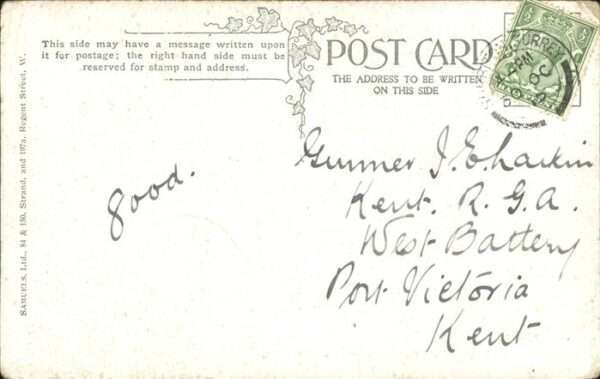 This side may have a message written upon
it for postage; the right hand side must be
reserved for stamp and address.
POST CARD
THE ADDRESS TO BE WRITTEN
ON THIS SIDE
SAMUELS, Ltd., 84 & 180, Strand, and 197a, Regent Street, W.
Good.
Gunner J. E. Larkin
Kent. R. G. A.
West Battery
Port Victoria
Kent
SURREY